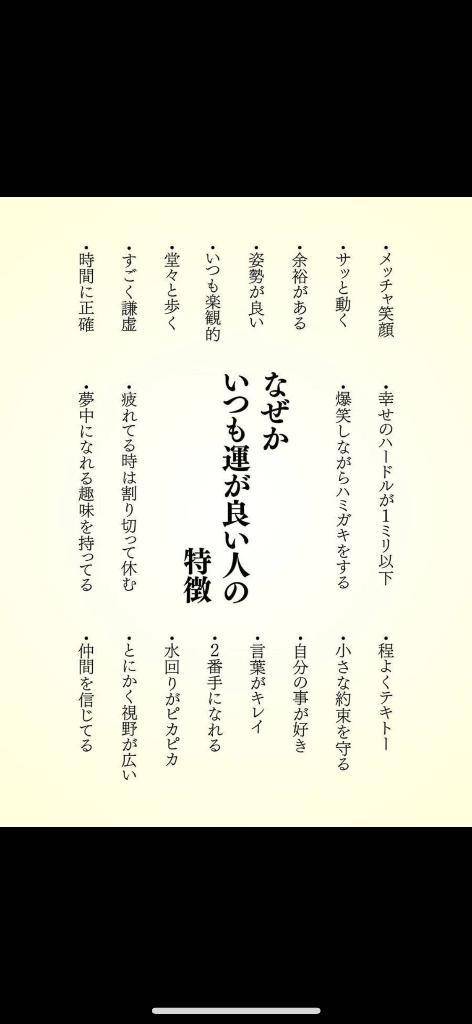 ・メッチャ笑顔
・サッと動く
・余裕がある
・姿勢が良い
・いつも楽観的
・堂々と歩く
・すごく謙虚
・時間に正確
・幸せのハードルが1ミリ以下
・爆笑しながらハミガキをする
なぜか
いつも運が良い人の
特徴
・疲れてる時は割り切って休む
・夢中になれる趣味を持ってる
・程よくテキトー
・小さな約束を守る
・自分の事が好き
・言葉がキレイ
・2番手になれる
・水回りがピカピカ
・とにかく視野が広い
・仲間を信じてる